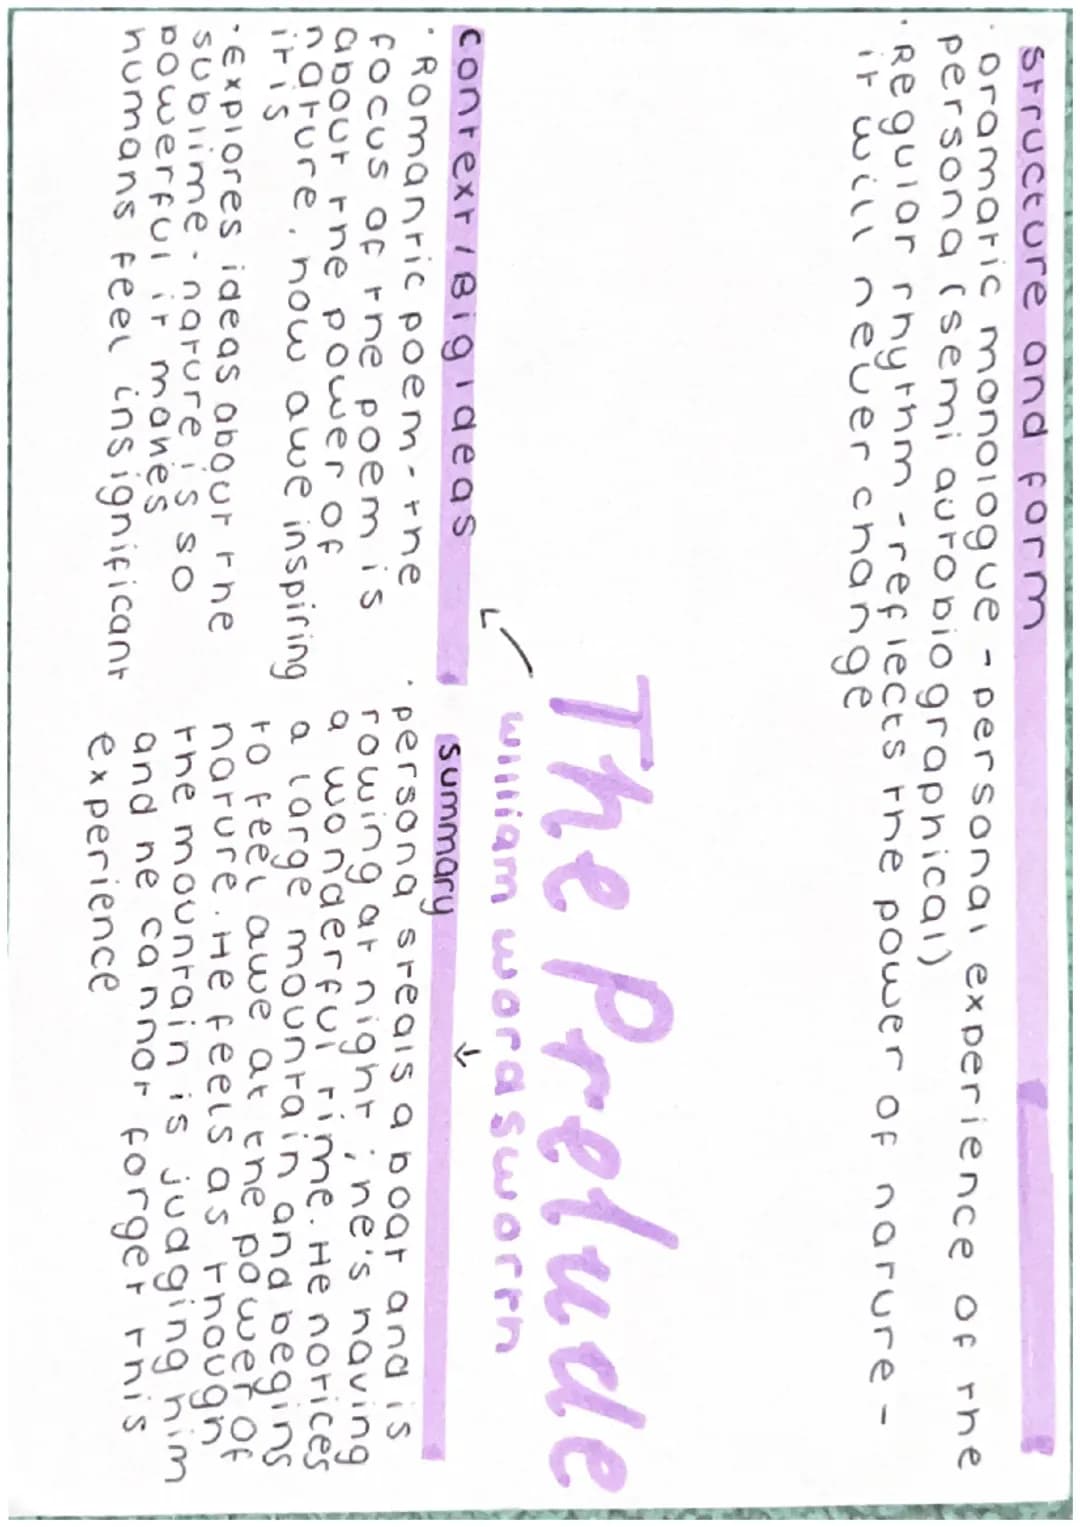 structure and form
· Dramatic monologue - personal experience of the
persona (semi autobiographical)
· Regular rhythm - reflects the power of nature -
it will never change
The Prelude
William wordsworth
context / Big ideas
· Romantic poem - the
focus of the poem is
about the power of
nature, how awe inspiring
it is
· Explores ideas about the
sublime - nature is so
powerful it makes
humans feel insignificant
summary
· persona steals a boat and is
rowing at night ; he's having
a wonderful time. He notices
a large mountain and begins
to feel awe at the power of
nature. He feels as though
the mountain is judging him
and he cannot forget this
experience